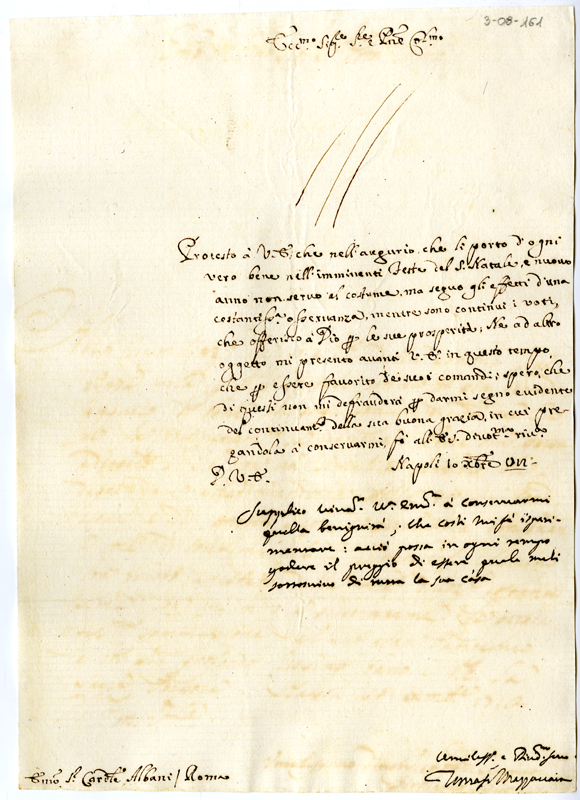 3-08-161
Protesto à V.S. che nell'augurio, che li porto d'ogni
vero bene nell'imminenti feste del S. Natale, e nuovo
anno non servo al costume, ma seguo gli effetti d'una
costantiss.ª osservanza, mentre sono continui i voti,
che offerisco à Dio per le sue prosperità; Ne ad altro
oggetto mi presento avanti V.S. in questo tempo,
che per essere favorito de suoi comandi; spero, che
di questi non mi defrauderà per darmi segno evidente
del continuant.e della sua buona grazia, in cui pre-
gandola à conservarmi, fò all' devot.ma riv.a
D. V. S. Napoli 10 Xbre
Supplico vivam.te V. Em.za à conservarmi
quella benignità, che così mi fà isperi-
mentare: acciò possa in ogni tempo
godere il preggio di essere quale mi
sottoscrivo di tutta la sua casa
Em.o S.r Card.le Albani / Roma
e